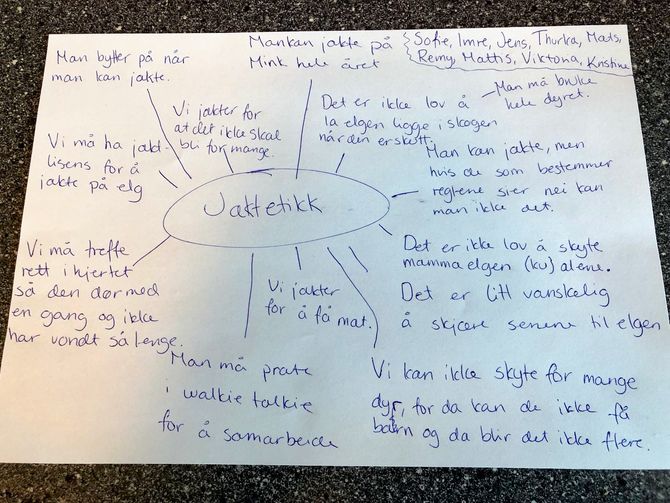 Man bytter på når
man kan jakte.
Man kan jakte på
Mink hele året
Sofie, Imre, Jens, Thurka, Mats,
Remy, Mattis, Viktoria, Kristine
Vi jakter for
at det ikke skal
bli for mange.
Det er ikke lov å
la elgen ligge i skogen
når den er skutt.
Man må bruke
hele dyret.
Vi må ha jakt-
lisens for å
jakte på elg
Man kan jakte, men
hvis de som bestemmer
reglene sier nei kan
man ikke det.
Jaktetikk
Vi må treffe
rett i hjertet
så den dør med
en gang og ikke
har vondt så lenge.
Vi jakter
for å få mat.
Det er ikke lov å skyte
mammaelgen (ku) alene.
Det er litt vanskelig
å skjære senene til elgen
Man må prate
i walkie talkie
for å samarbeide
Vi kan ikke skyte for mange
dyr, for da kan de ikke få
barn og da blir det ikke flere.